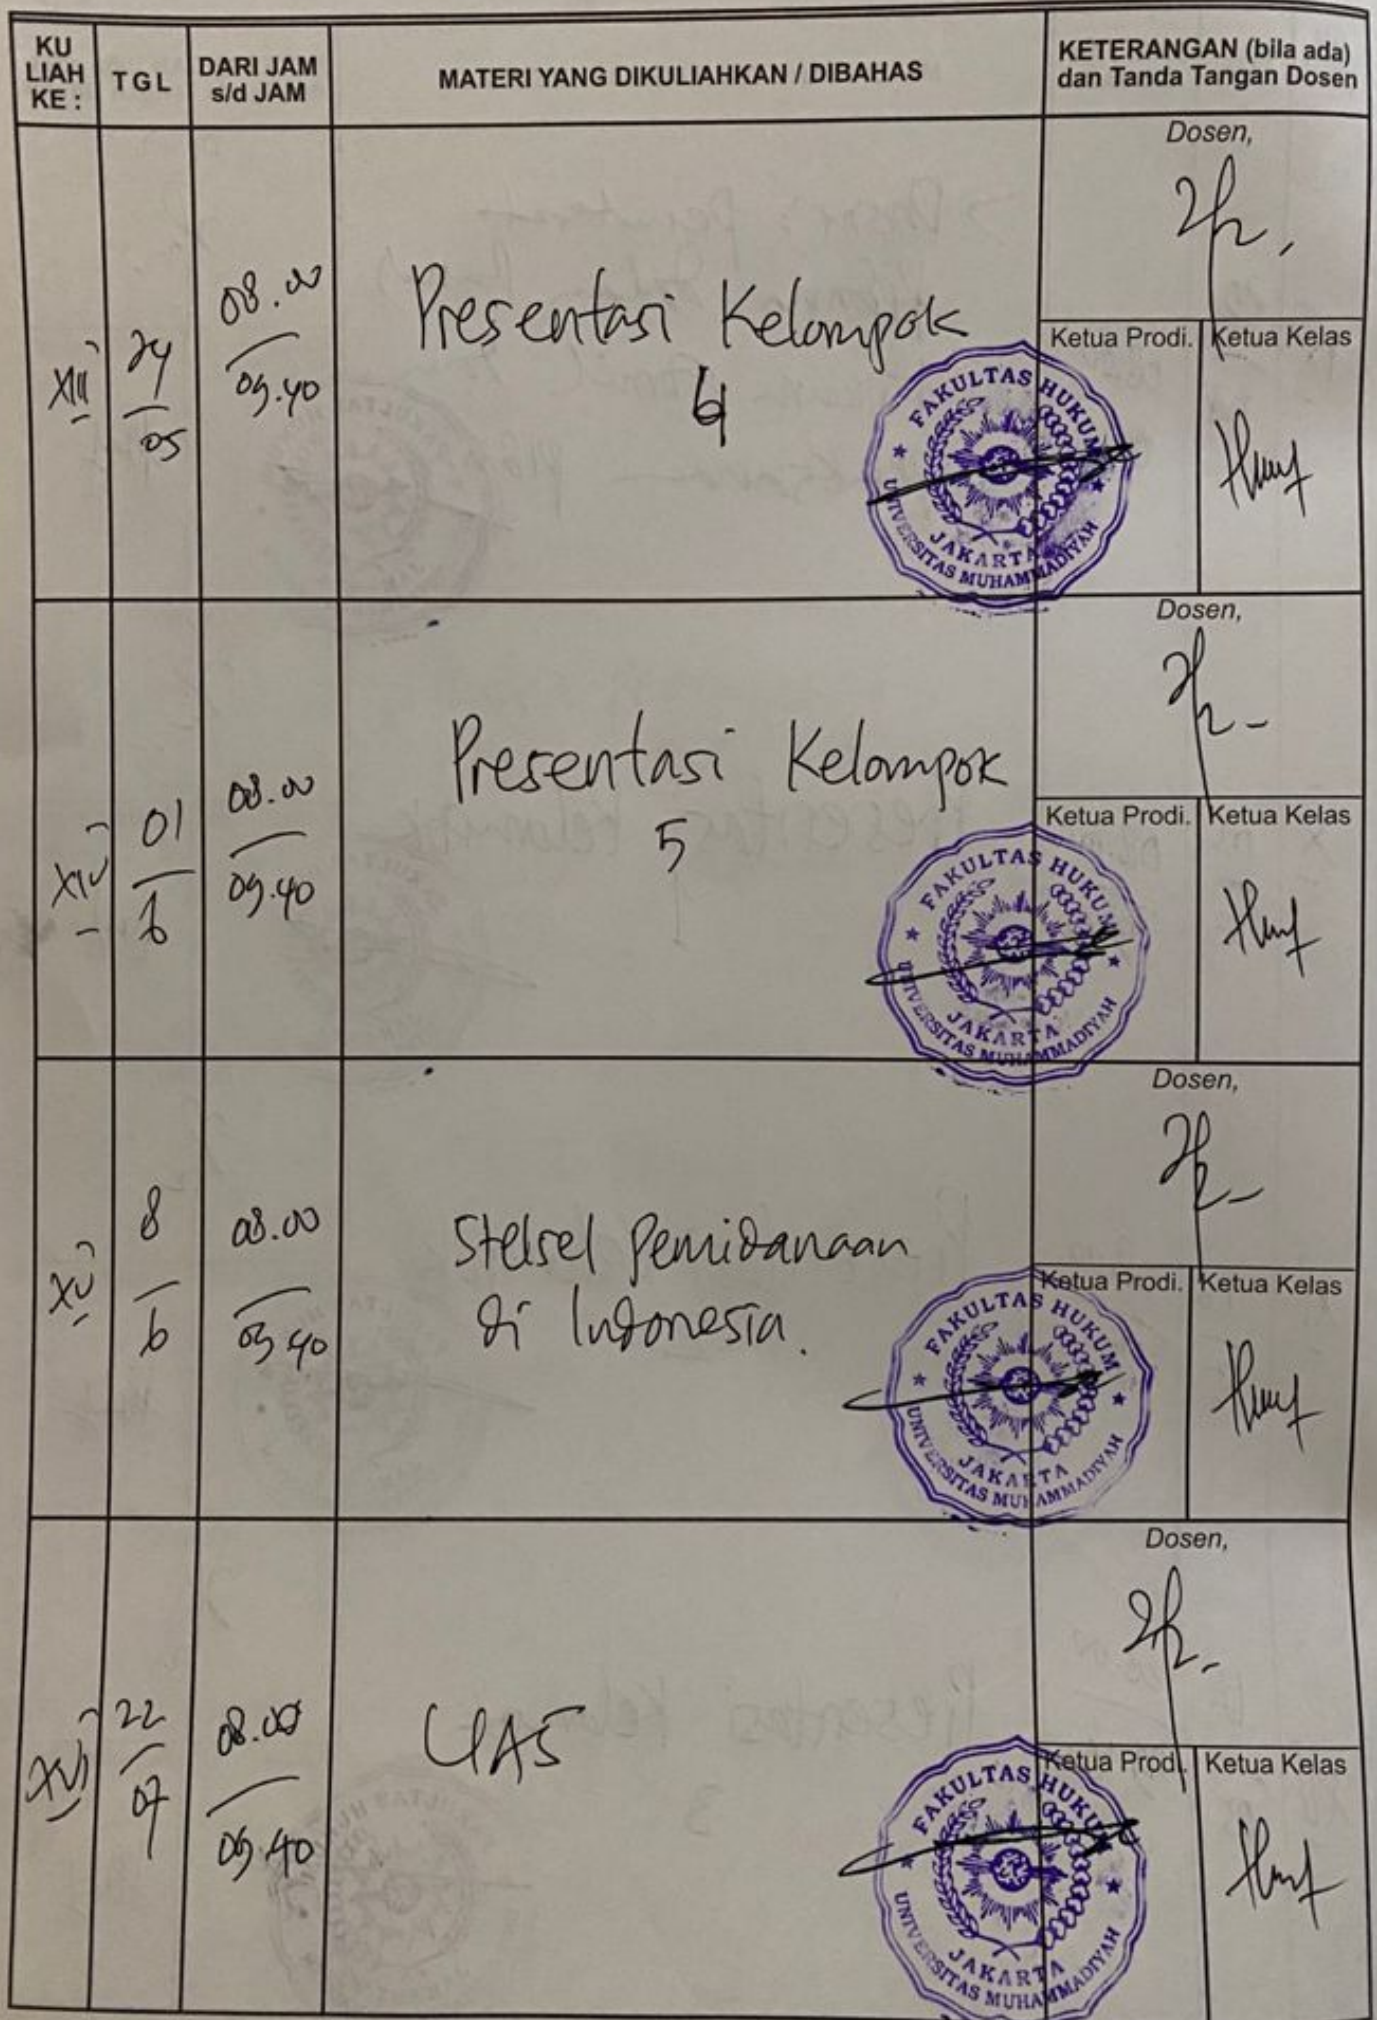 KU
LIAH
KE :
TGL
DARI JAM
s/d JAM
MATERI YANG DIKULIAHKAN / DIBAHAS
KETERANGAN (bila ada)
dan Tanda Tangan Dosen
XIII
24
05
08.00
09.40
Presentasi Kelompok
4
Dosen,
Ketua Prodi.
Ketua Kelas
FAKULTAS HUKUM
JAKARTA
UNIVERSITAS MUHAMMADIYAH
XIV
01
6
08.00
09.40
Presentasi Kelompok
5
Dosen,
Ketua Prodi.
Ketua Kelas
FAKULTAS HUKUM
JAKARTA
UNIVERSITAS MUHAMMADIYAH
XV
8
6
08.00
09.40
Stelsel Pemidanaan
di Indonesia.
Dosen,
Ketua Prodi.
Ketua Kelas
FAKULTAS HUKUM
JAKARTA
UNIVERSITAS MUHAMMADIYAH
XVI
22
07
08.00
09.40
UAS
Dosen,
Ketua Prodi.
Ketua Kelas
FAKULTAS HUKUM
JAKARTA
UNIVERSITAS MUHAMMADIYAH